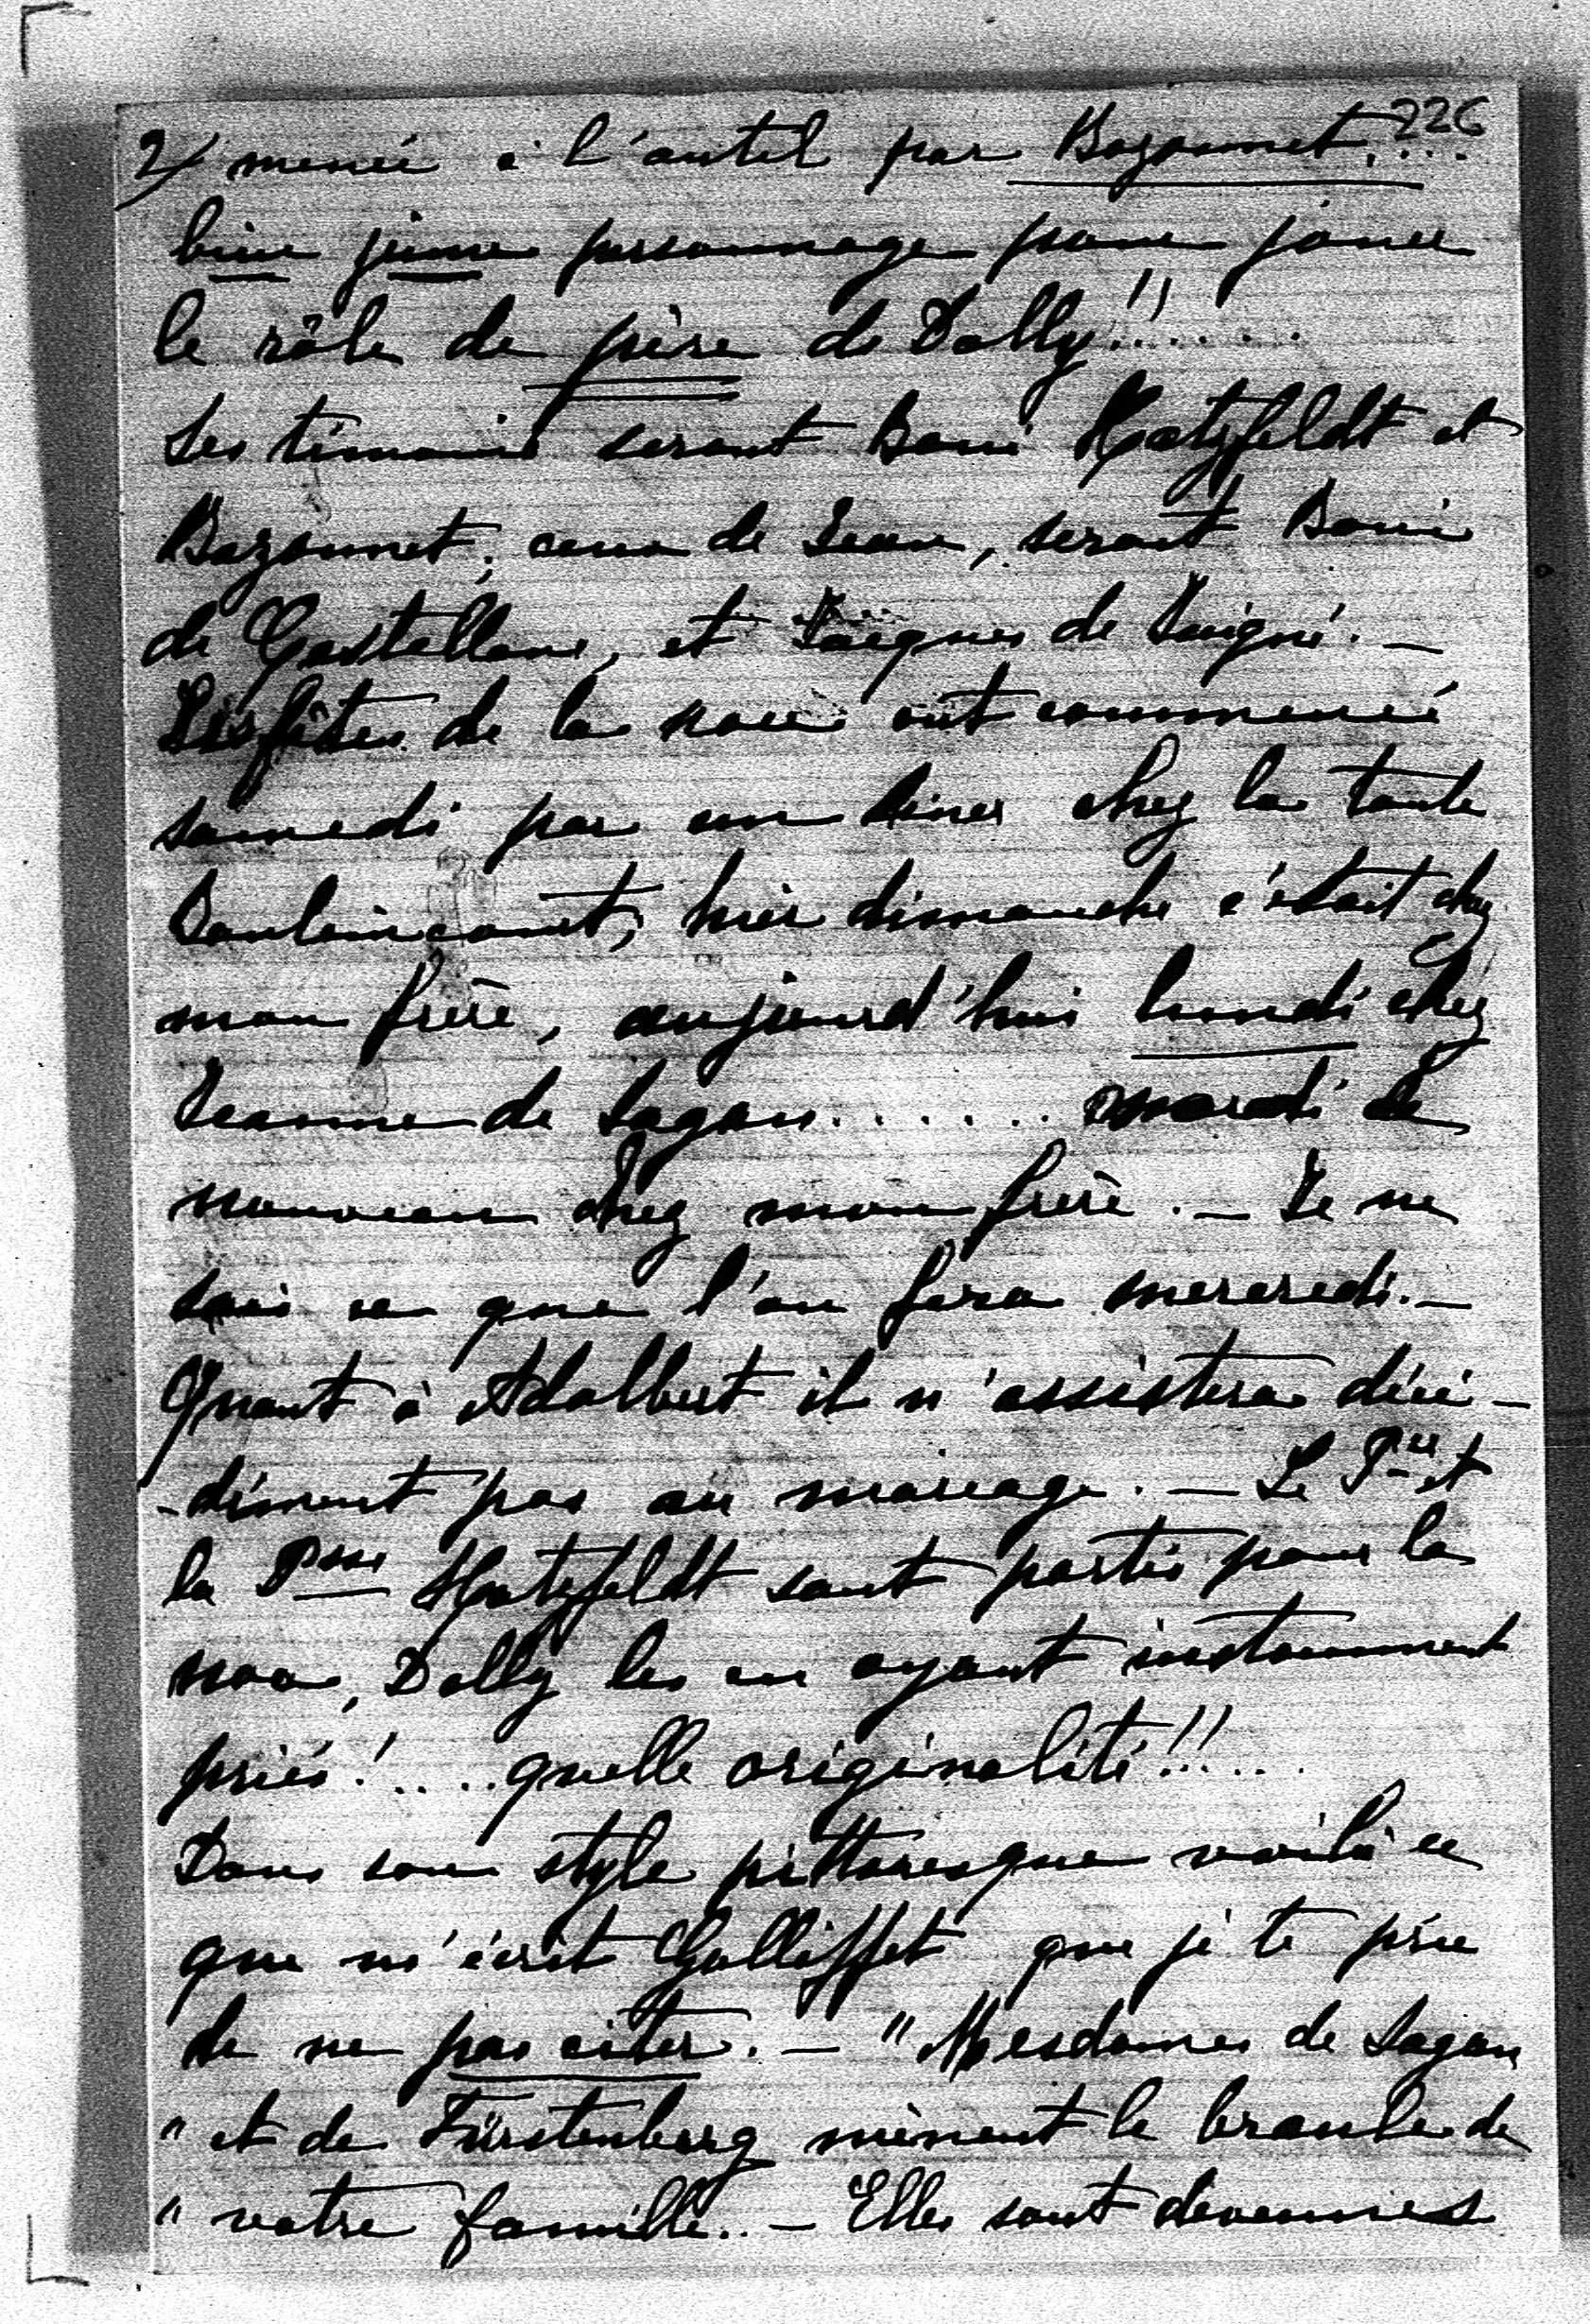 226
2/ menée à l'autel par Bozonnet....
bien jeune personnage pour jouer
le rôle de père de Dolly!!......
Ses témoins seront Boni Hatzfeldt et
Bozonnet; ceux de Jean, seront Boni
de Castellane, et Jacques de
Les fêtes de la noce ont commencé
samedi par un diner chez la tante
hier dimanche c'était chez
mon frère, aujourd'hui lundi chez
Jeanne de Sagan....... mardi de
nouveau chez mon frère. — Je ne
sais ce que l'on fera mercredi. —
Quant à Adalbert il n'assistera déci-
-dément pas au mariage. — Le Pce et
la Psse Hatzfeldt sont partis pour la
noce, Dolly les en ayant instamment
priés!.... quelle originalité!!.....
Dans son style pittoresque voilà ce
que m'écrit Galliffet que je te prie
de ne pas citer. — "Mesdames de Sagan
" et de Fürstenberg mènent le branle de
" votre famille.. — Elles sont devenues